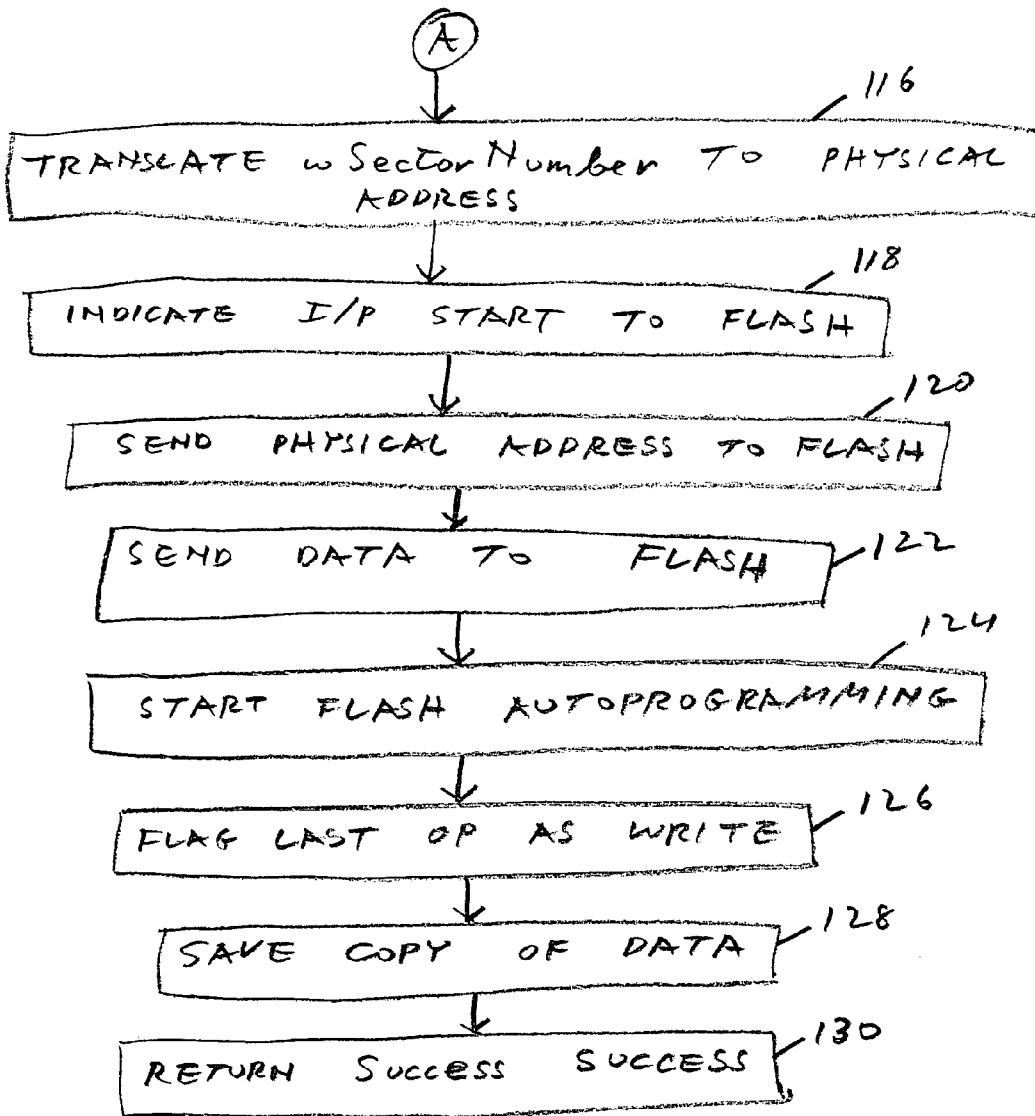 A
116
TRANSLATE wSectorNumber TO PHYSICAL
ADDRESS
118
INDICATE I/P START TO FLASH
120
SEND PHYSICAL ADDRESS TO FLASH
SEND DATA TO FLASH 122
124
START FLASH AUTOPROGRAMMING
FLAG LAST OP AS WRITE 126
SAVE COPY OF DATA 128
RETURN Success SUCCESS 130